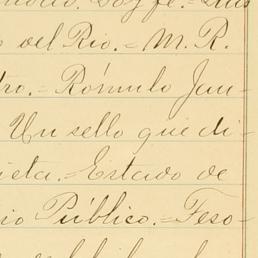 Doy fe.= Luis
del Rio.= M. R.
tro.= Rómulo Jau-
Un sello que di-
ieta.= Estado de
io Público.= Teso-